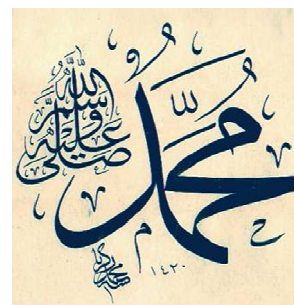 محمد
صلى الله عليه وسلم
١٤٢٠